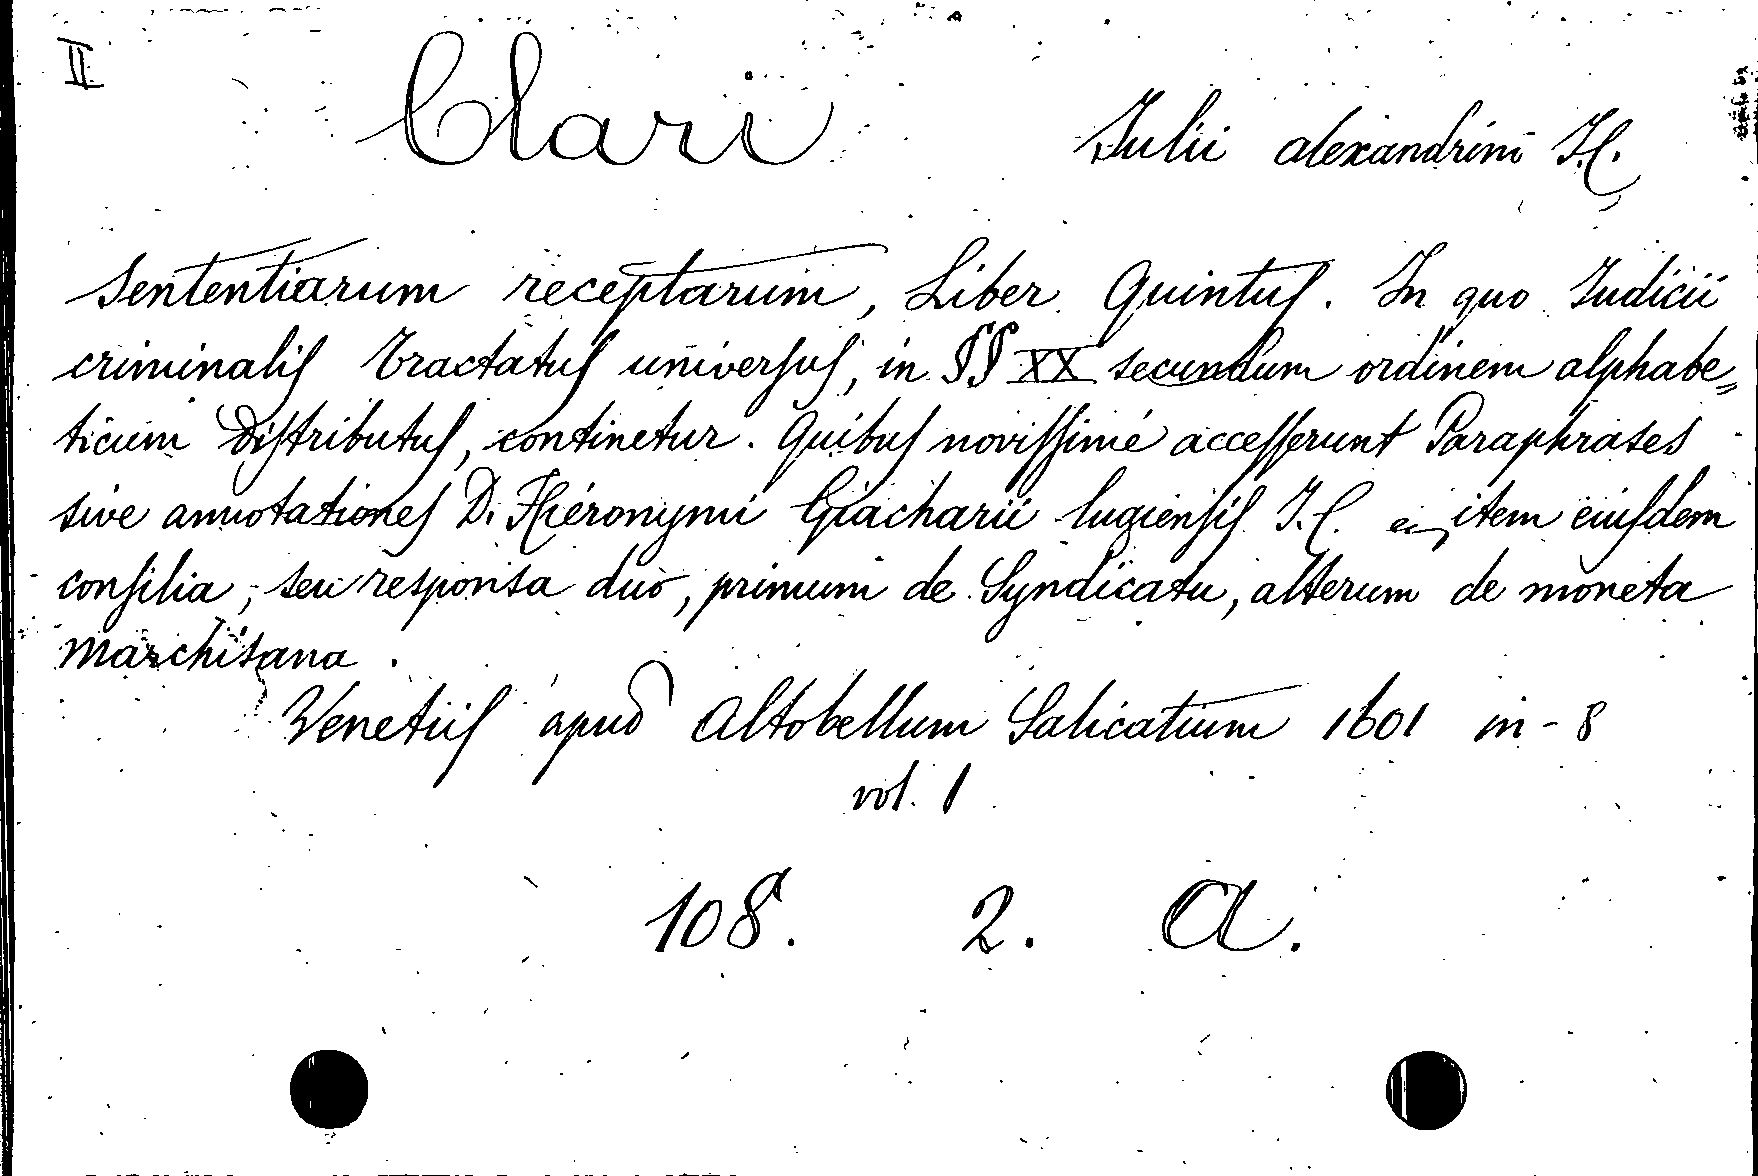 II Clari Iulii alexandrini I.C.
Sententiarum receptarum, Liber Quintus. In quo Iudicii
criminalis Tractatus universus, in §§ XX secundum ordinem alphabe„
ticum distributus, continetur. Quibus novissimé accesserunt Paraphrases
sive annotationes D. Hiéronymi Giacharii lugiensis I.C. item eiusdem
consilia, seu responsa duo, primum de Syndicatu, alterum de moneta
Marchisana.
Venetiis apud Altobellum Salicatium 1601 in-8
vol. 1
108. 2. A.